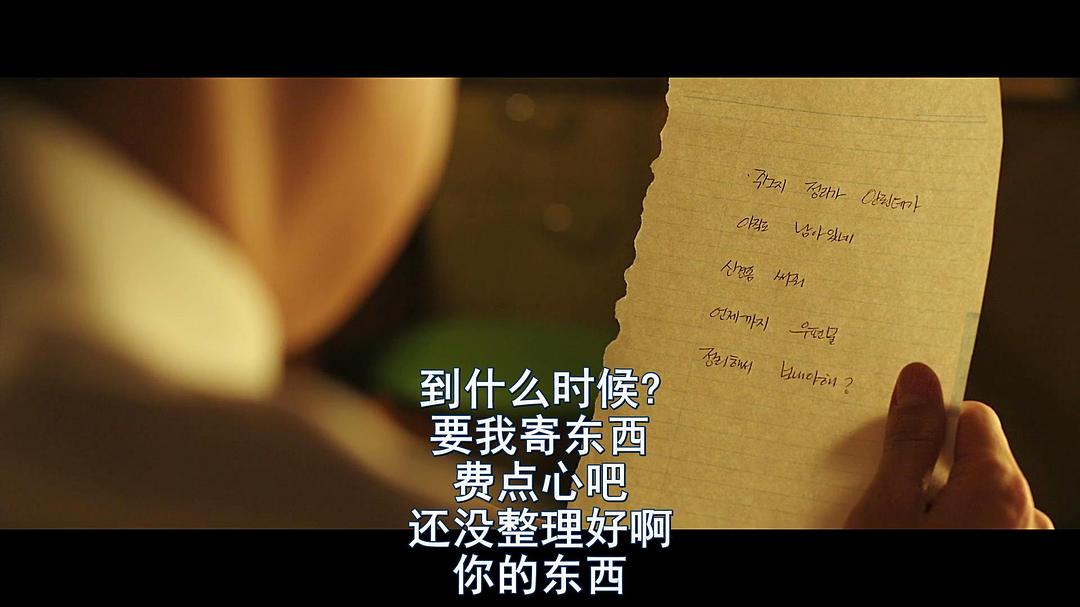 주소지 정리가 안된데가
아직도 남아있네
신경좀 써줘
언제까지 우편물
정리해서 보내야해?
到什么时候?
要我寄东西
费点心吧
还没整理好啊
你的东西